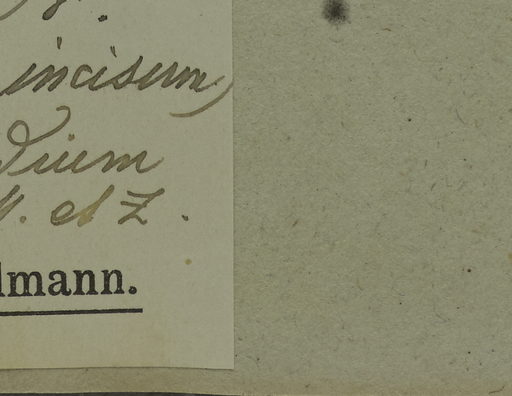 incisum)
dium
et Z.
lmann.